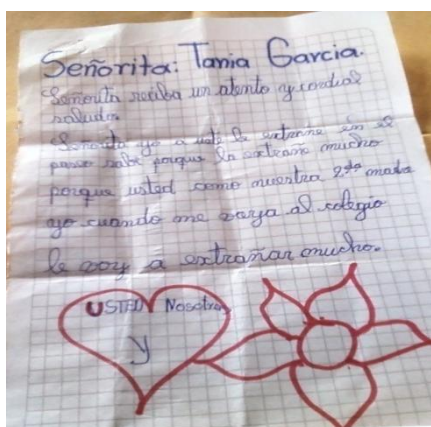 Señorita: Tania Garcia.
Señorita reciba un atento y cordial
saludo.
Señorita yo a usté le extrañe en el
paseo sabe porque la extrañe mucho
porque usted como nuestra 2da madre
yo cuando me vaya al colegio
le voy a extrañar mucho.
USTED Nosotros
y